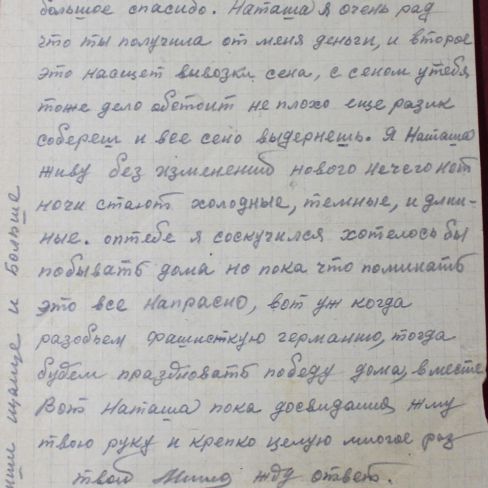 большое спасибо. Наташа я очень рад
что ты получила от меня деньги, и второе
это наащет вывозки сена, с сеном утебя
тоже дело обстоит не плохо еще разик
собереш и все сено выдернешь. Я Наташа
живу без изменений нового нечего нет
ночи стают холодные, темные, и длин-
ные. оптебе я соскучился хотелось бы
побывать дома но пока что поминать
это все напрасно, вот уж когда
разобьем фашисткую германию, тогда
будем праздновать победу дома, вместе
Вот Наташа пока досвидания жму
твою руку и крепко целую многое раз
твой ждут ответ.
пиши чаще и больше